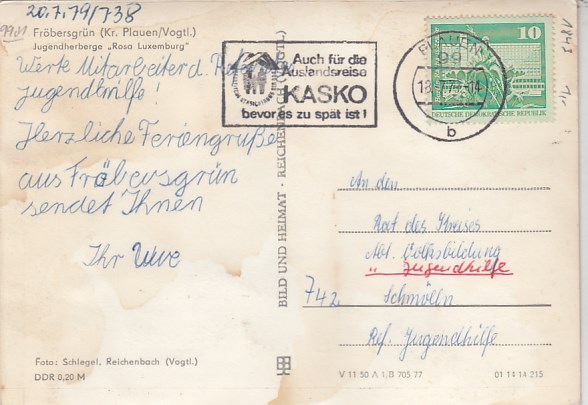 20.7.79/738
Fröbersgrün (Kr. Plauen/Vogtl.)
Jugendherberge „Rosa Luxemburg"
Werte Mitarbeiter d.
Jugendhilfe!
Herzliche Feriengrüße
aus Fröbersgrün
sendet Ihnen
Ihr Uwe
Foto: Schlegel, Reichenbach (Vogtl.)
DDR 0,20 M
Auch für die
Auslandsreise
KASKO
bevor es zu spät ist!
BILD UND HEIMAT · REICHENBACH (VOGTL)
PLAUEN
99
b
10
DEUTSCHE DEMOKRATISCHE REPUBLIK
An den
Rat des Kreises
Abt. Volksbildung
" Jugendhilfe
742 Schmölln
Ref. Jugendhilfe
V 11 50 A 1, B 705 77 01 14 14 215